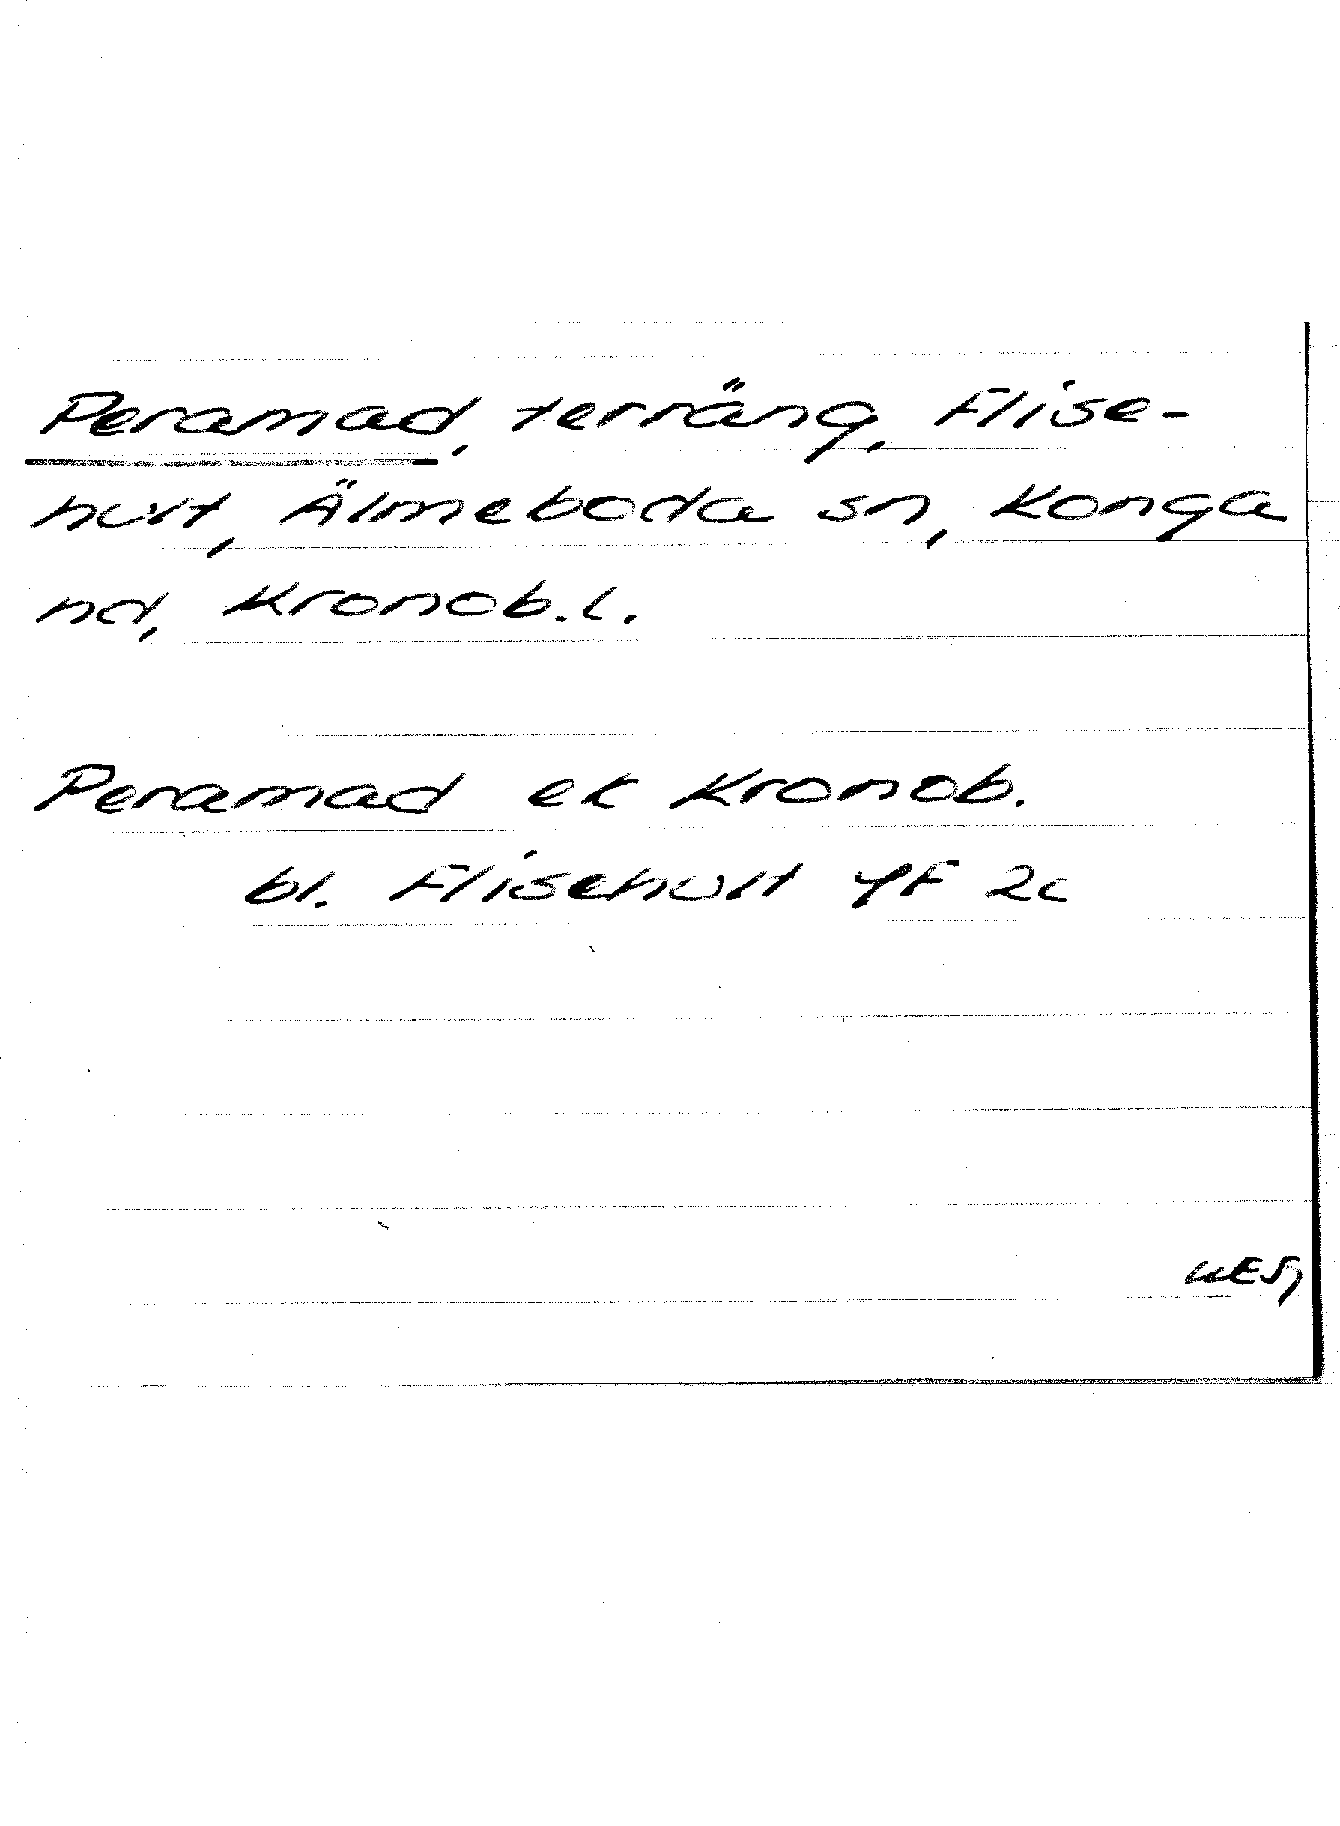 Peramad, terräng, Flise-
hult, Älmeboda sn, Konga
hd, Kronob. l.
Peramad ek Kronob.
bl. Flisehult 4F 2c